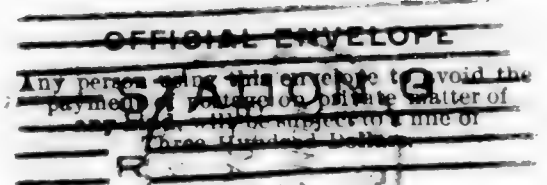 OFFICIAL ENVELOPE
Any person using this envelope to avoid the
STATION G
payment of postage on private matter of
any kind, will be subject to a fine of
Three Hundred Dollars.
R